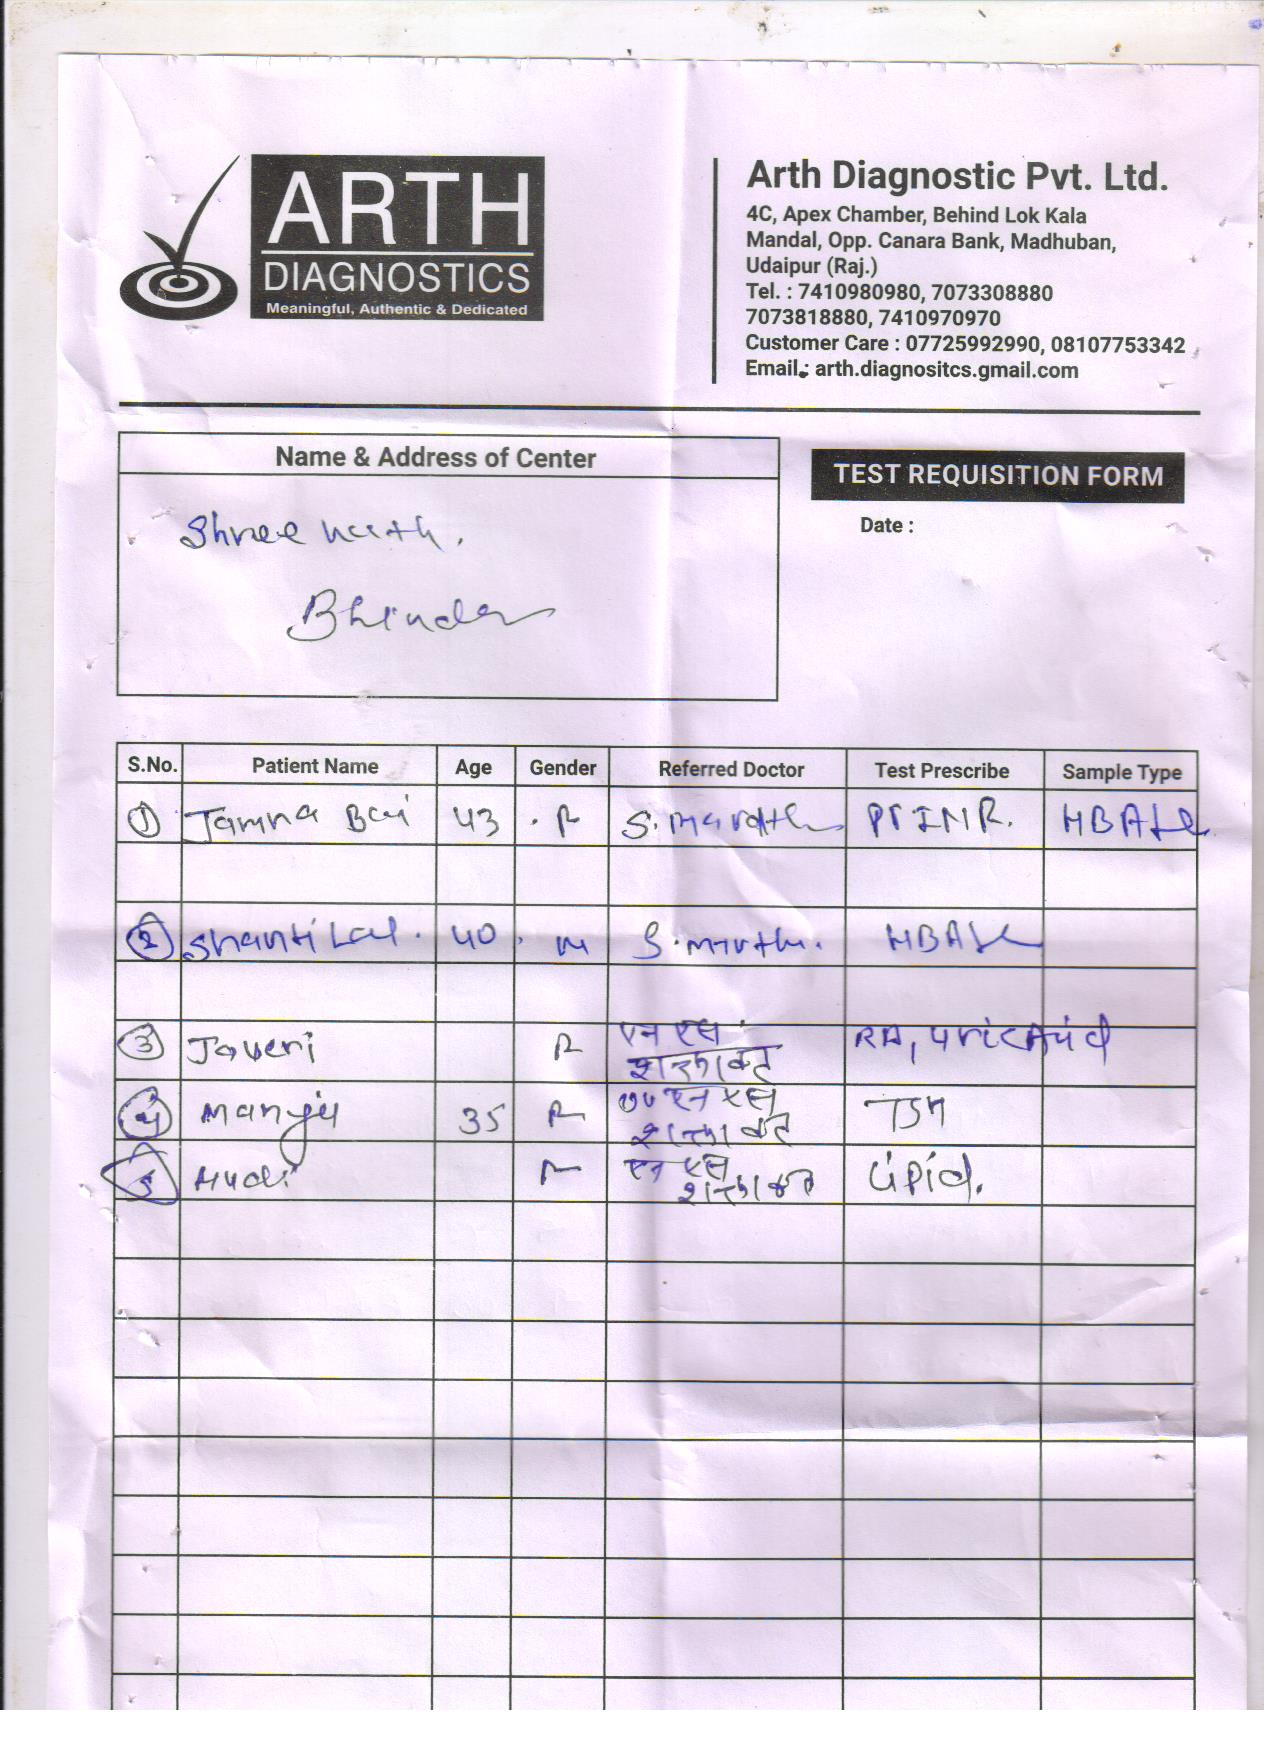 ARTH
DIAGNOSTICS
Meaningful, Authentic & Dedicated
Arth Diagnostic Pvt. Ltd.
4C, Apex Chamber, Behind Lok Kala
Mandal, Opp. Canara Bank, Madhuban,
Udaipur (Raj.)
Tel. : 7410980980, 7073308880
7073818880, 7410970970
Customer Care : 07725992990, 08107753342
Email.: arth.diagnositcs.gmail.com
Name & Address of Center
TEST REQUISITION FORM
Date :
Shree nath.
Bhinder
S.No. Patient Name Age Gender Referred Doctor Test Prescribe Sample Type
1 Jamna Bai 43 F PTINR. HBA1c
2 Shanti Lal. 40. m HBA1c
3 Javeri F एन एस RA, uric Acid
4 Manju 35 F एन एस TSH
5 F एन एस Lipid.